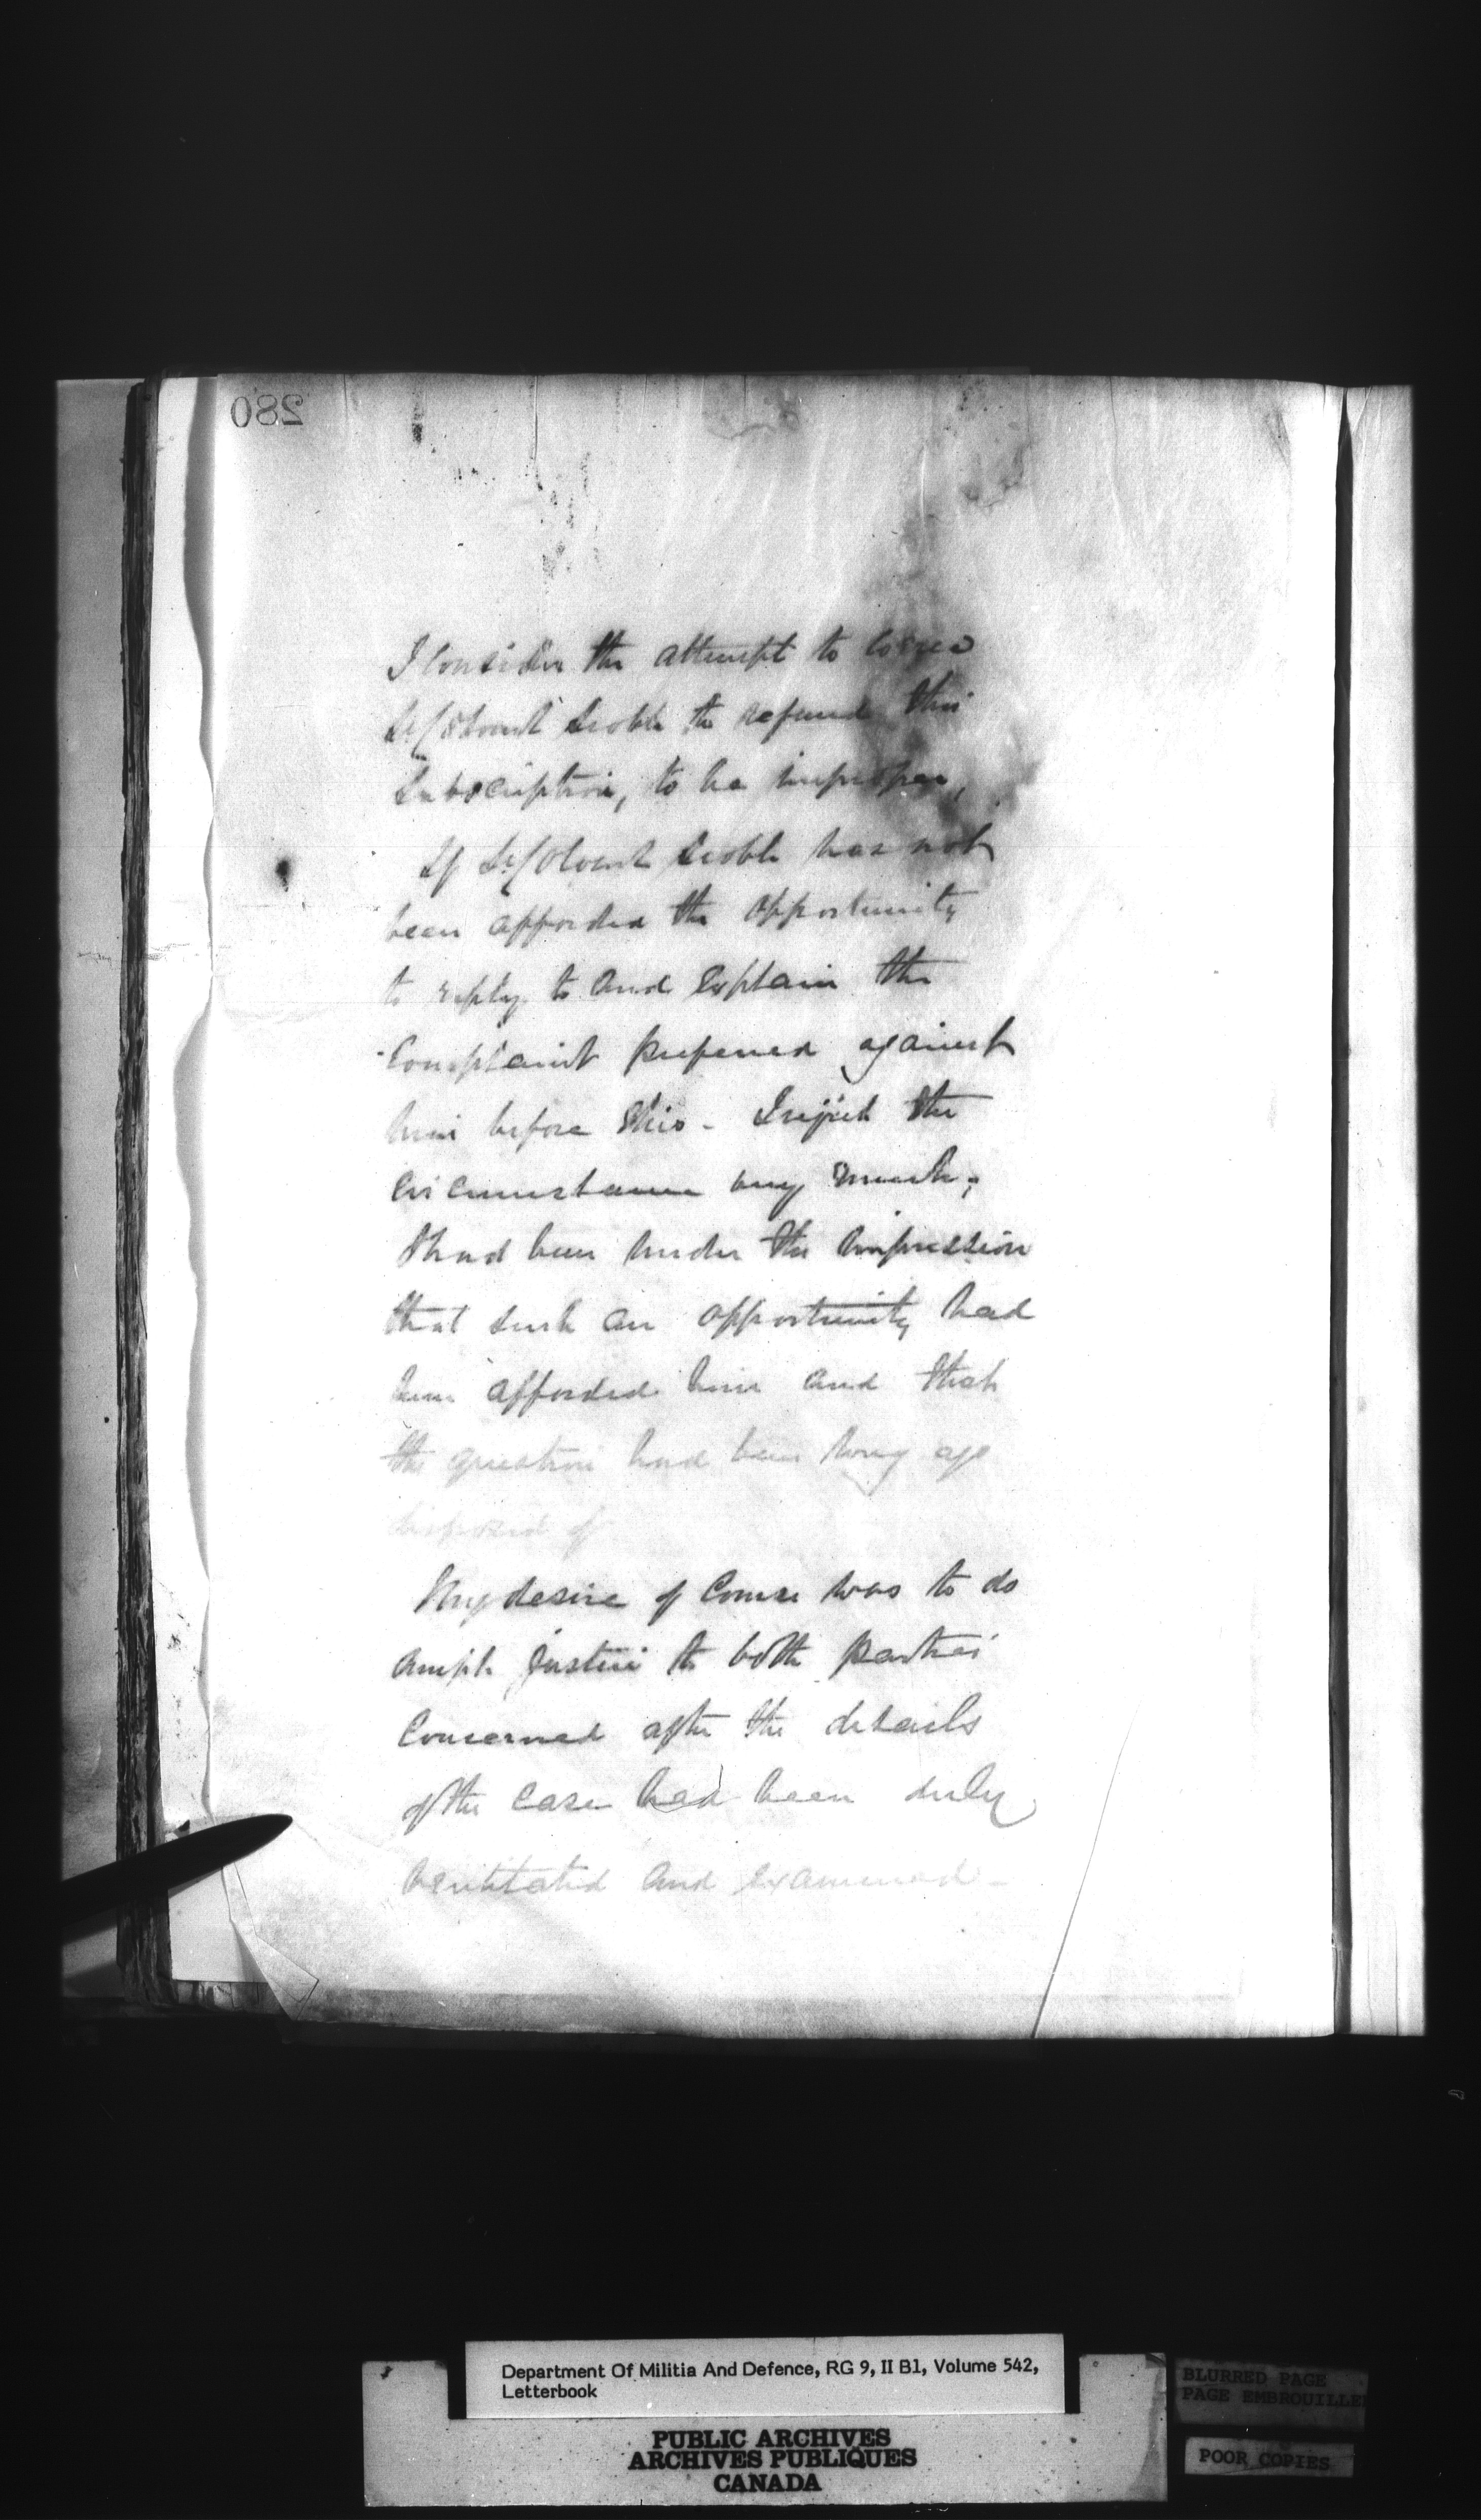 280
I consider the attempt to coerce
Lt/Colonel Scoble to refund this
Subscription, to be improper,
If Lt/Colonel Scoble has not
been afforded the opportunity
to reply to and explain the
Complaint preferred against
him before this - I regret the
circumstance very much;
I had been under the impression
that such an opportunity had
been afforded him and that
the question had been long ago
disposed of
My desire of Course was to do
ample justice to both parties
Concerned after the details
of the case had been duly
ventilated and examined -
Department Of Militia And Defence, RG 9, II B1, Volume 542,
Letterbook
PUBLIC ARCHIVES
ARCHIVES PUBLIQUES
CANADA
BLURRED PAGE
PAGE EMBROUILLE
POOR COPIES